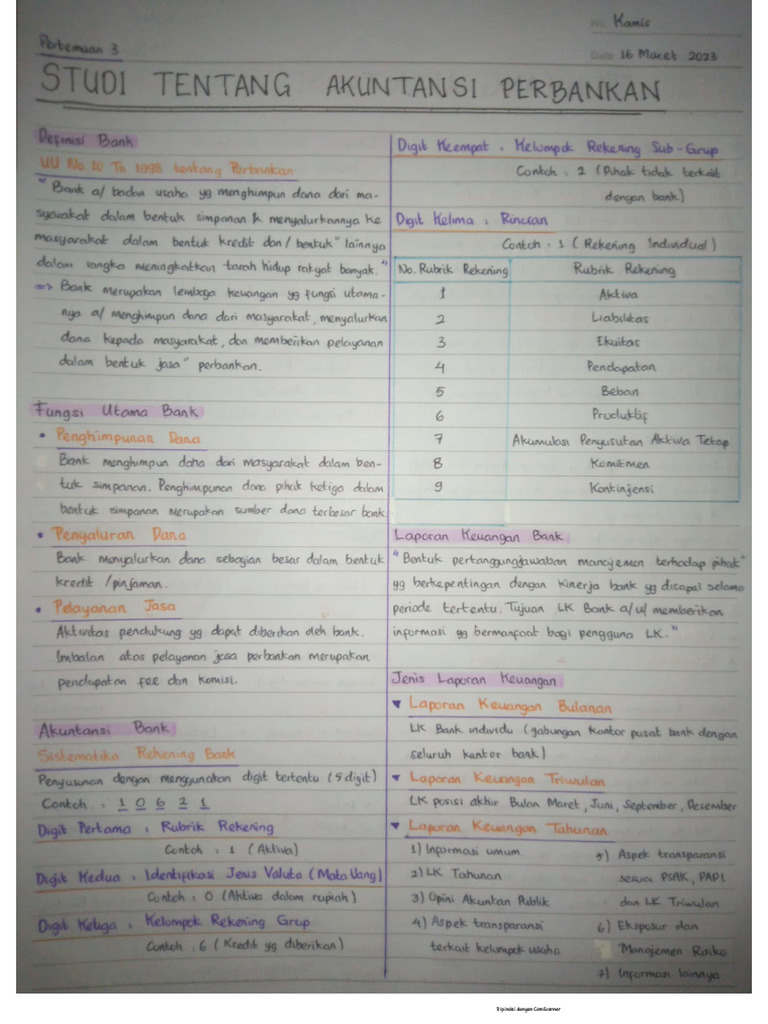 No. Kamis
Pertemuan 3
Date 16 Maret 2023
STUDI TENTANG AKUNTANSI PERBANKAN
Definisi Bank
UU No 10 Th 1998 tentang Perbankan
"Bank a/ badan usaha yg menghimpun dana dari ma-
syarakat dalam bentuk simpanan & menyalurkannya ke
masyarakat dalam bentuk kredit dan/ bentuk" lainnya
dalam rangka meningkatkan tarah hidup rakyat banyak."
=> Bank merupakan lembaga keuangan yg fungsi utama-
nya a/ menghimpun dana dari masyarakat, menyalurkan
dana kepada masyarakat, dan memberikan pelayanan
dalam bentuk jasa" perbankan.
Fungsi Utama Bank
• Penghimpunan Dana
Bank menghimpun dana dari masyarakat dalam ben-
tuk simpanan. Penghimpunan dana pihak ketiga dalam
bentuk simpanan merupakan sumber dana terbesar bank
• Penyaluran Dana
Bank menyalurkan dana sebagian besar dalam bentuk
kredit /pinjaman.
• Pelayanan Jasa
Aktivitas pendukung yg dapat diberikan oleh bank.
Imbalan atas pelayanan jasa perbankan merupakan
pendapatan fee dan komisi.
Akuntansi Bank
Sistematika Rekening Bank
Penyusunan dengan menggunakan digit tertentu (5 digit)
Contoh : 1 0 6 2 1
Digit Pertama : Rubrik Rekening
Contoh : 1 (Aktiva)
Digit Kedua : Identifikasi Jenis Valuta (Mata Uang)
Contoh : 0 (Aktiva dalam rupiah)
Digit Ketiga : Kelompok Rekening Grup
Contoh : 6 (Kredit yg diberikan)
Digit Keempat : Kelompok Rekening Sub-Grup
Contoh : 2 (Pihak tidak terkait
dengan bank)
Digit Kelima : Rincian
Contoh : 1 (Rekening Individual)
No. Rubrik Rekening Rubrik Rekening
1 Aktiva
2 Liabilitas
3 Ekuitas
4 Pendapatan
5 Beban
6 Produktif
7 Akumulasi Penyusutan Aktiva Tetap
8 Komitmen
9 Kontinjensi
Laporan Keuangan Bank
"Bentuk pertanggungjawaban manajemen terhadap pihak"
yg berkepentingan dengan kinerja bank yg dicapai selama
periode tertentu. Tujuan LK Bank a/ u/ memberikan
informasi yg bermanfaat bagi pengguna LK."
Jenis Laporan Keuangan
▼ Laporan Keuangan Bulanan
LK Bank individu (gabungan kantor pusat bank dengan
seluruh kantor bank)
▼ Laporan Keuangan Triwulan
LK posisi akhir Bulan Maret, Juni, September, Desember
▼ Laporan Keuangan Tahunan
1) Informasi umum
2) LK Tahunan
3) Opini Akuntan Publik
4) Aspek transparansi
terkait kelompok usaha
5) Aspek transparansi
sesuai PSAK, PAPI
dan LK Triwulan
6) Eksposur dan
Manajemen Risiko
7) Informasi lainnya
Dipindai dengan CamScanner